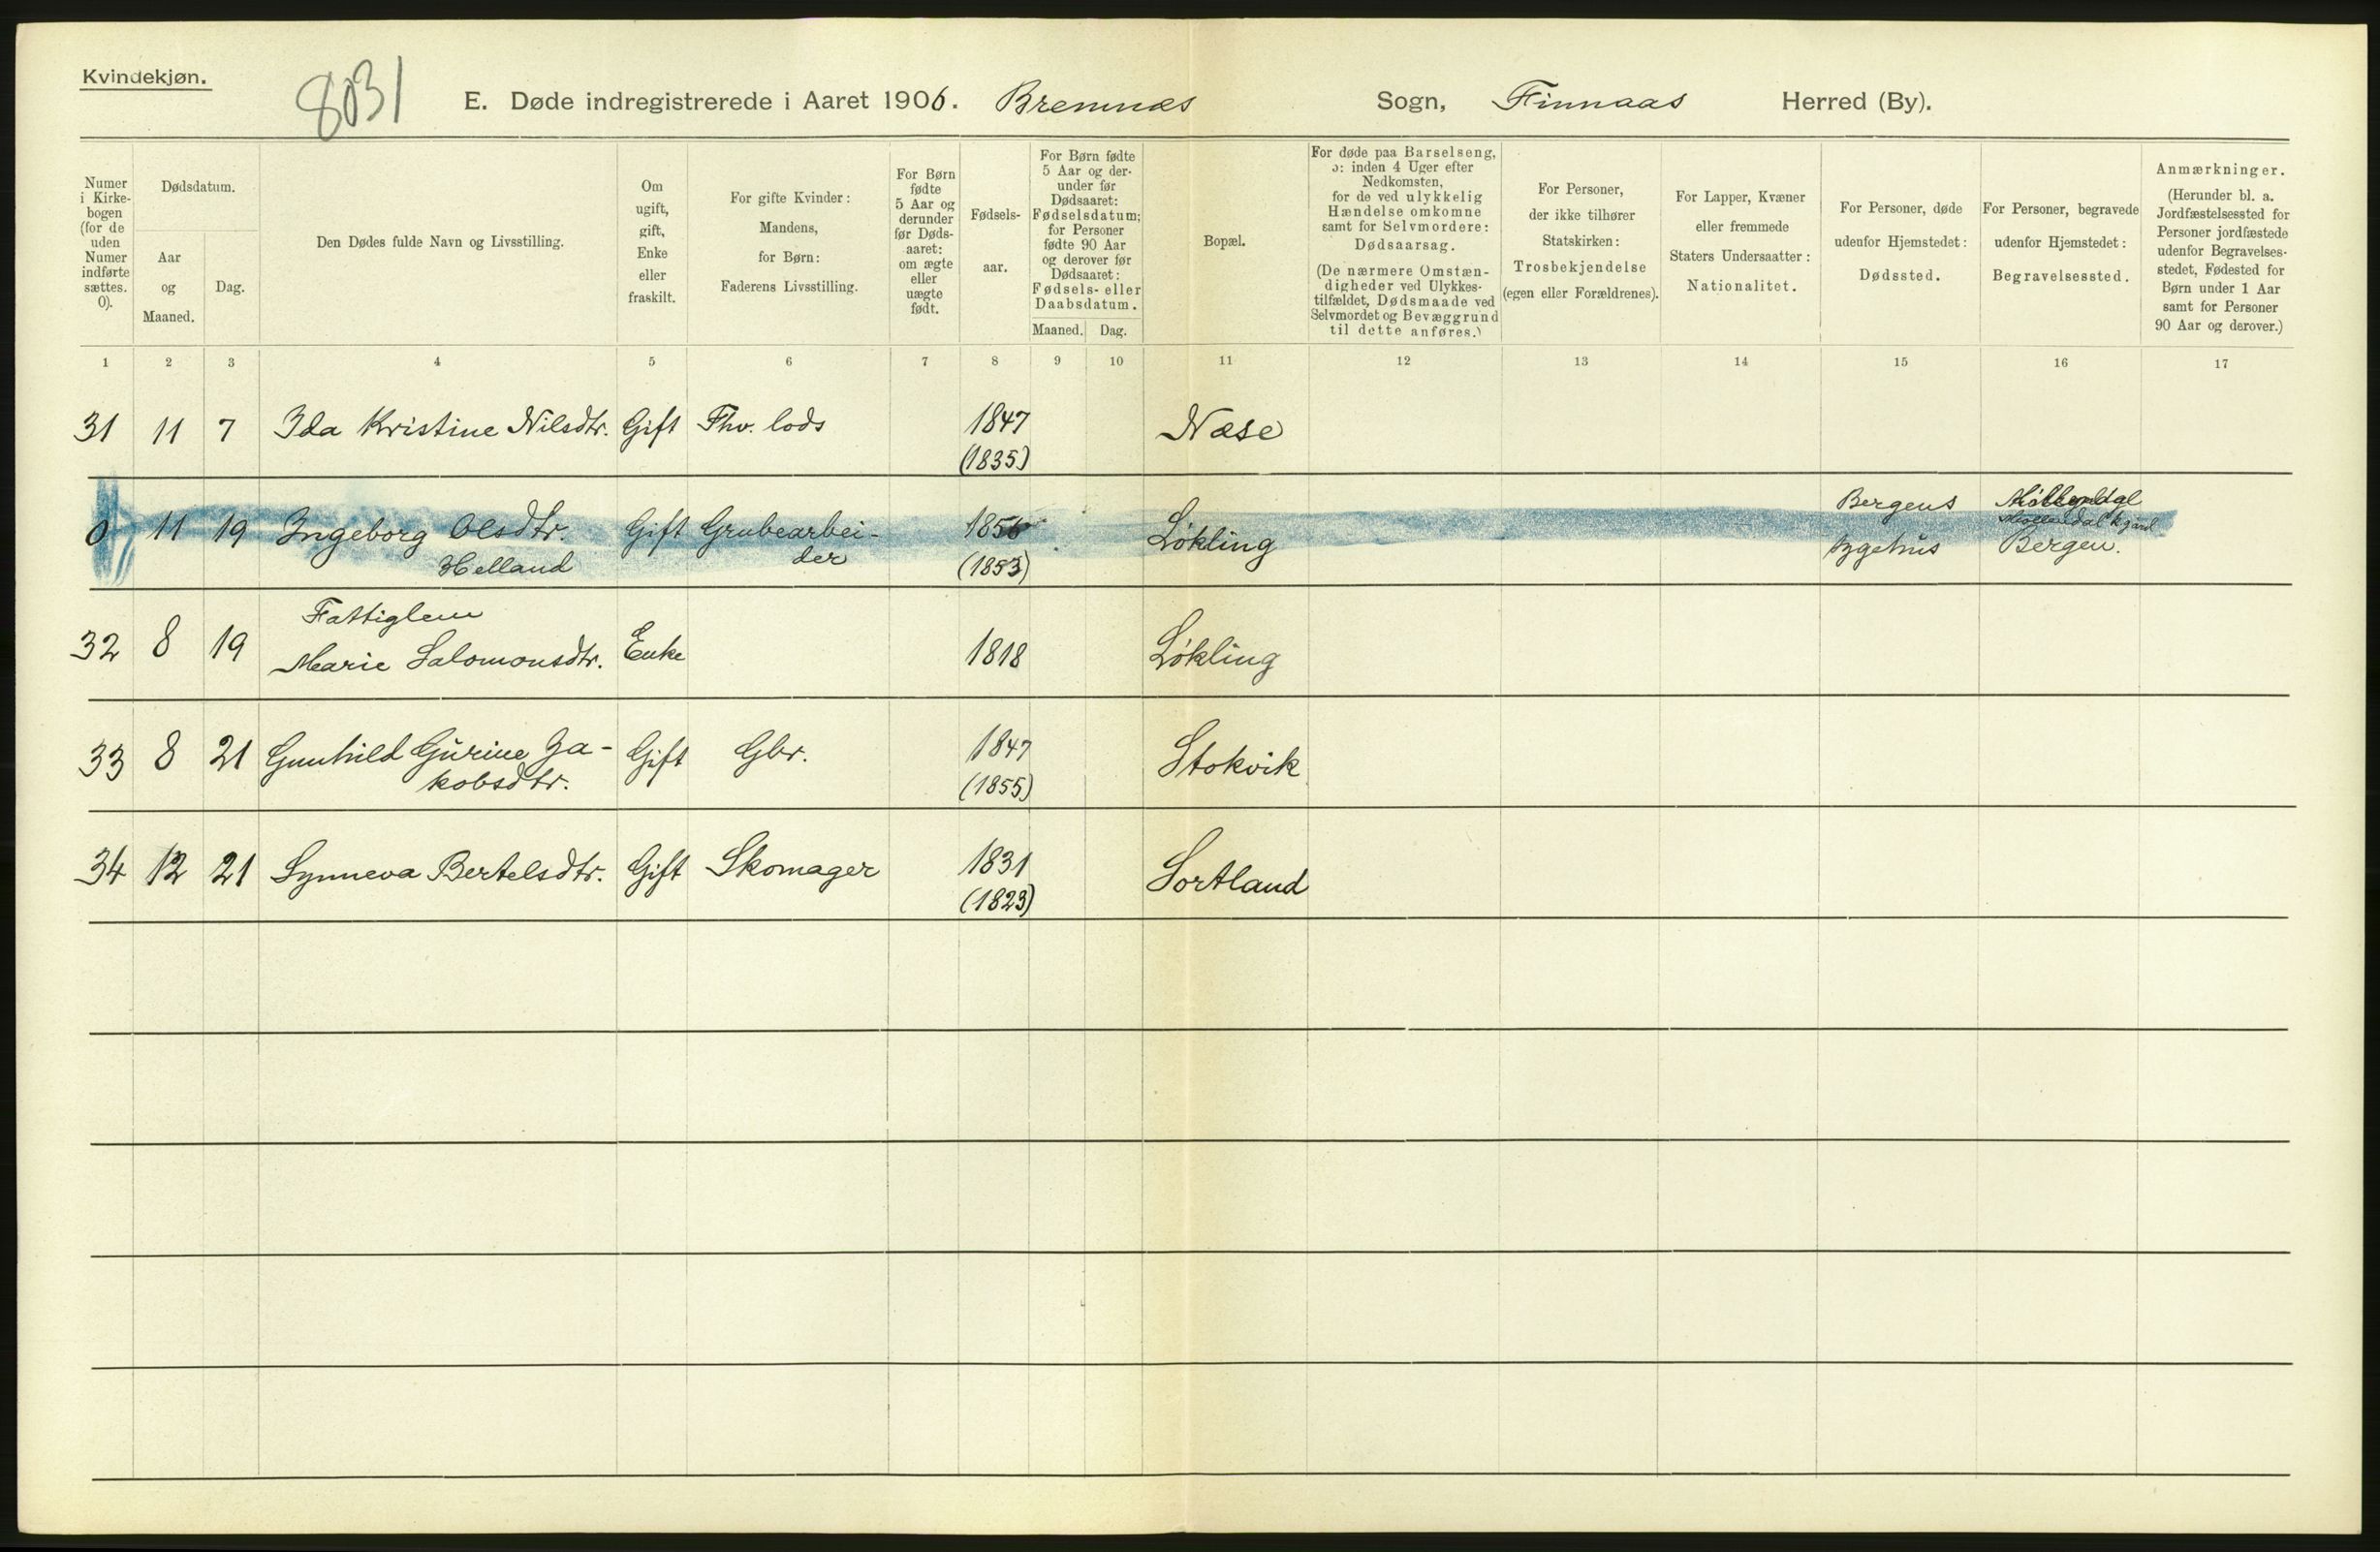 Kvindekjøn.
8031
E. Døde indregistrerede i Aaret 1906. Bremnæs Sogn, Finnaas Herred (By).
Numer
i Kirke-
bogen
(for de
uden
Numer
indførte
sættes.
0).
Dødsdatum.
Aar
og
Maaned.
Dag.
Den Dødes fulde Navn og Livsstilling.
Om
ugift,
gift,
Enke
eller
fraskilt.
For gifte Kvinder:
Mandens,
for Børn:
Faderens Livsstilling.
For Børn
fødte
5 Aar og
derunder
før Døds-
aaret:
om ægte
eller
uægte
født.
Fødsels-
aar.
For Børn fødte
5 Aar og der-
under før
Dødsaaret:
Fødselsdatum;
for Personer
fødte 90 Aar
og derover før
Dødsaaret:
Fødsels- eller
Daabsdatum.
Maaned. Dag.
Bopæl.
For døde paa Barselseng,
ɔ: inden 4 Uger efter
Nedkomsten,
for de ved ulykkelig
Hændelse omkomne
samt for Selvmordere:
Dødsaarsag.
(De nærmere Omstæn-
digheder ved Ulykkes-
tilfældet, Dødsmaade ved
Selvmordet og Bevæggrund
til dette anføres.)
For Personer,
der ikke tilhører
Statskirken:
Trosbekjendelse
(egen eller Forældrenes).
For Lapper, Kvæner
eller fremmede
Staters Undersaatter:
Nationalitet.
For Personer, døde
udenfor Hjemstedet:
Dødssted.
For Personer, begravede
udenfor Hjemstedet:
Begravelsessted.
Anmærkninger.
(Herunder bl. a.
Jordfæstelsessted for
Personer jordfæstede
udenfor Begravelses-
stedet, Fødested for
Børn under 1 Aar
samt for Personer
90 Aar og derover.)
1 2 3 4 5 6 7 8 9 10 11 12 13 14 15 16 17
31 11 7 Ida Kristine Nilsdtr. Gift Fhv. lods 1847 Næse
(1835)
Bergens Møllendal
0 11 19 Ingeborg Olsdtr. Gift Grubearbei- 1856 Løkling Møllendal kgård
Helland der (1853) sygehus Bergen.
Fattiglem
32 8 19 Marie Salomonsdtr. Enke 1818 Løkling
33 8 21 Gunhild Gurine Ja- Gift Gbr. 1847 Stokvik
kobsdtr. (1855)
34 12 21 Synneva Bertelsdtr. Gift Skomager 1831 Sortland
(1823)